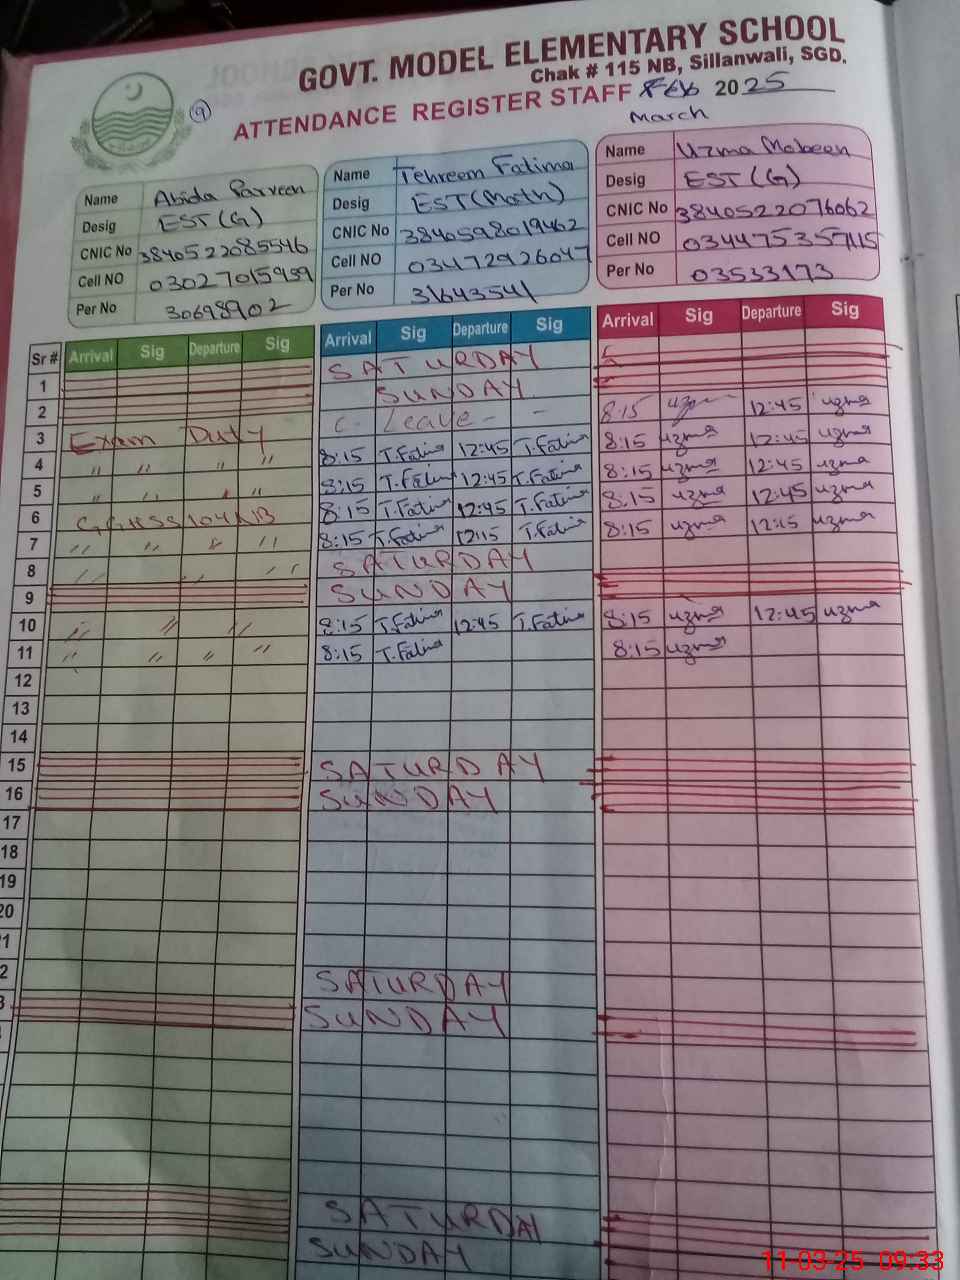 GOVT. MODEL ELEMENTARY SCHOOL
Chak # 115 NB, Sillanwali, SGD.
9
ATTENDANCE REGISTER STAFF Feb 2025
March
Name Abida Parveen
Desig EST (G)
CNIC No 3840522085546
Cell NO 03027015939
Per No 30698902
Name Tehreem Fatima
Desig EST (Math)
CNIC No 3840598019462
Cell NO 03472926047
Per No 31643541
Name Uzma Mobeen
Desig EST (G)
CNIC No 3840522076062
Cell NO
Per No 03533173
Sr # Arrival Sig Departure Sig Arrival Sig Departure Sig Arrival Sig Departure Sig
1 SATURDAY
2 SUNDAY
3 Exam Duty C. Leave - - 8:15 12:45 uzma
4 " " " " 8:15 T.Fatima 12:45 T.Fatima 8:15 uzma 12:45 uzma
5 " " " 8:15 T.Fatima 12:45 T.Fatima 8:15 uzma 12:45 uzma
6 GGHSS 104 NB 8:15 T.Fatima 12:45 T.Fatima 8:15 uzma 12:45 uzma
7 " " " " 8:15 T.Fatima 12:15 T.Fatima 8:15 uzma 12:15 uzma
8 " " " SATURDAY
9 SUNDAY
10 " " " 8:15 T.Fatima 12:45 T.Fatima 8:15 uzma 12:45 uzma
11 " " " " 8:15 T.Fatima 8:15 uzma
12
13
14
15 SATURDAY
16 SUNDAY
17
18
19
20
1
2 SATURDAY
3 SUNDAY
SATURDAY
SUNDAY
11-03-25 09:33